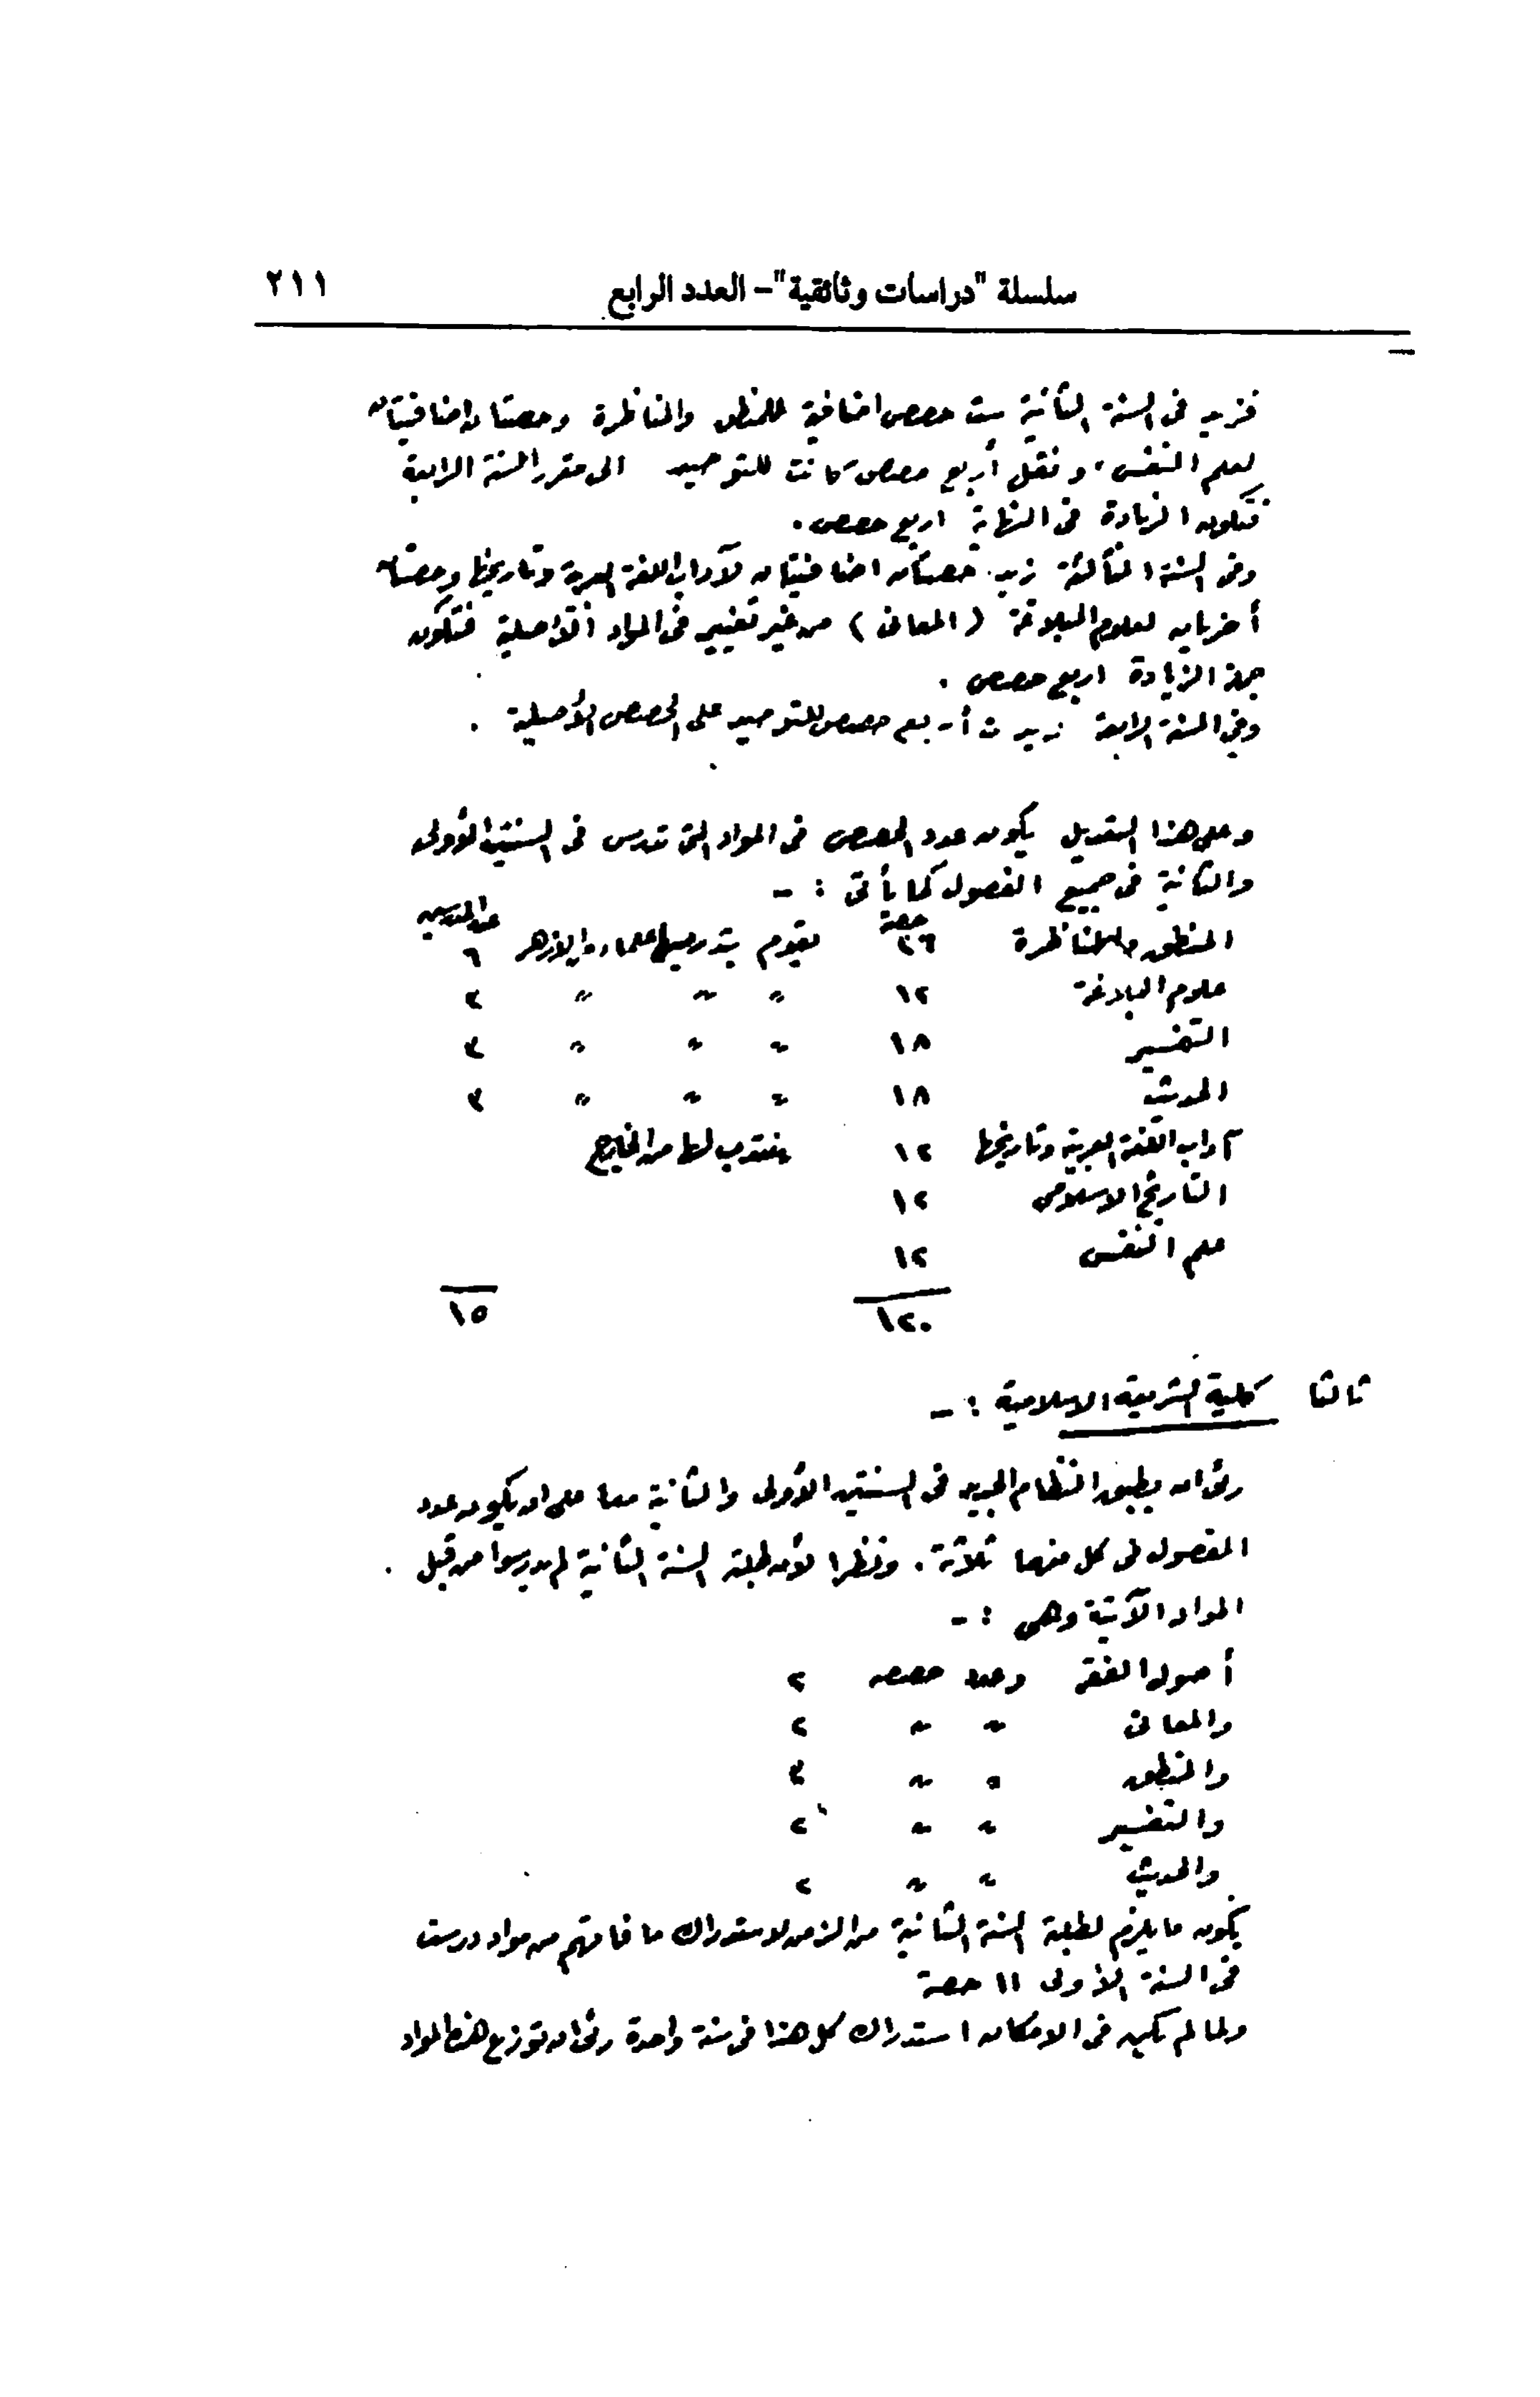 سلسلة "دراسات وثائقية" – العدد الرابع ٢١١
فزيد فى السنة الثانية ست حصص اضافية للمنطق والمناظرة وحصتان اضافيتان
لعلم النفس، ونقل أربع حصص كانت للتوحيد الى مقرر السنة الرابعة
فتكون الزيادة فى النهاية اربع حصص .
وفى السنة الثالثة زيد حصتان اضافيتان لآداب اللغة العربية وتاريخها وحصتان
أخريان لعلوم البلاغة ( المعانى ) من غير تغيير فى المواد الأصلية فتكون
جملة الزيادة اربع حصص .
وفى السنة الرابعة زيدت أربع حصص للتوحيد على الحصص الأصلية .
وعلى هذا التعديل يكون عدد الحصص فى المواد التى تدرس فى السنتين الأولى
والثانية فى جميع الفصول كما يأتى : -
حصة عدد المدرسين
المنطق والمناظرة ٣٦ يقوم بتدريسها علماء الأزهر ٦
علوم البلاغة ١٢ " " " ٣
التفسير ١٨ " " " ٣
الحديث ١٨ " " " ٣
آداب اللغة العربية وتاريخها ١٢ ينتدب لها من الخارج
التاريخ الاسلامى ١٢
علم النفس ١٢
١٢٠ ١٥
ثالثا كلية الشريعة الاسلامية : -
رئى ان يطبق النظام الجديد فى السنتين الأولى والثانية معا على ان يكون عدد
الفصول فى كل منهما ثلاثة . ونظرا لأن طلبة السنة الثانية لم يدرسوا من قبل .
المواد الآتية وهى : -
أصول الفقه وعدد حصصه ٢
والمعانى " " ٢
والمنطق " " ٣
والتفسير " " ٢
والحديث " " ٢
يكون ما يلزم لطلبة السنة الثانية من الزمن لاستدراك ما فاتهم من مواد درست
فى السنة الأولى ١١ حصة
ولما لم يكن فى الامكان استدراك كل هذا فى سنة واحدة رئى ان توزع هذه المواد